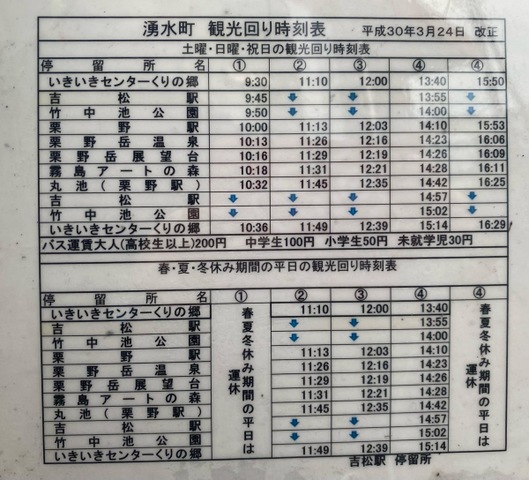 湧水町 観光回り時刻表 平成30年3月24日 改正
土曜・日曜・祝日の観光回り時刻表
停留所名 ① ② ③ ④ ④
いきいきセンターくりの郷 9:30 11:10 12:00 13:40 15:50
吉松駅 9:45 13:55
竹中池公園 9:50 14:00
栗野駅 10:00 11:13 12:03 14:10 15:53
栗野岳温泉 10:13 11:26 12:16 14:23 16:06
栗野岳展望台 10:16 11:29 12:19 14:26 16:09
霧島アートの森 10:18 11:31 12:21 14:28 16:11
丸池(栗野駅) 10:32 11:45 12:35 14:42 16:25
吉松駅 14:57
竹中池公園 15:02
いきいきセンターくりの郷 10:36 11:49 12:39 15:14 16:29
バス運賃大人(高校生以上)200円 中学生100円 小学生50円 未就学児30円
春・夏・冬休み期間の平日の観光回り時刻表
停留所名 ① ② ③ ④ ④
いきいきセンターくりの郷 11:10 12:00 13:40
吉松駅 13:55
竹中池公園 14:00
栗野駅 11:13 12:03 14:10
栗野岳温泉 11:26 12:16 14:23
栗野岳展望台 11:29 12:19 14:26
霧島アートの森 11:31 12:21 14:28
丸池(栗野駅) 11:45 12:35 14:42
吉松駅 14:57
竹中池公園 15:02
いきいきセンターくりの郷 11:49 12:39 15:14
春夏冬休み期間の平日は
運休
春夏冬休み期間の平日は
運休
吉松駅 停留所